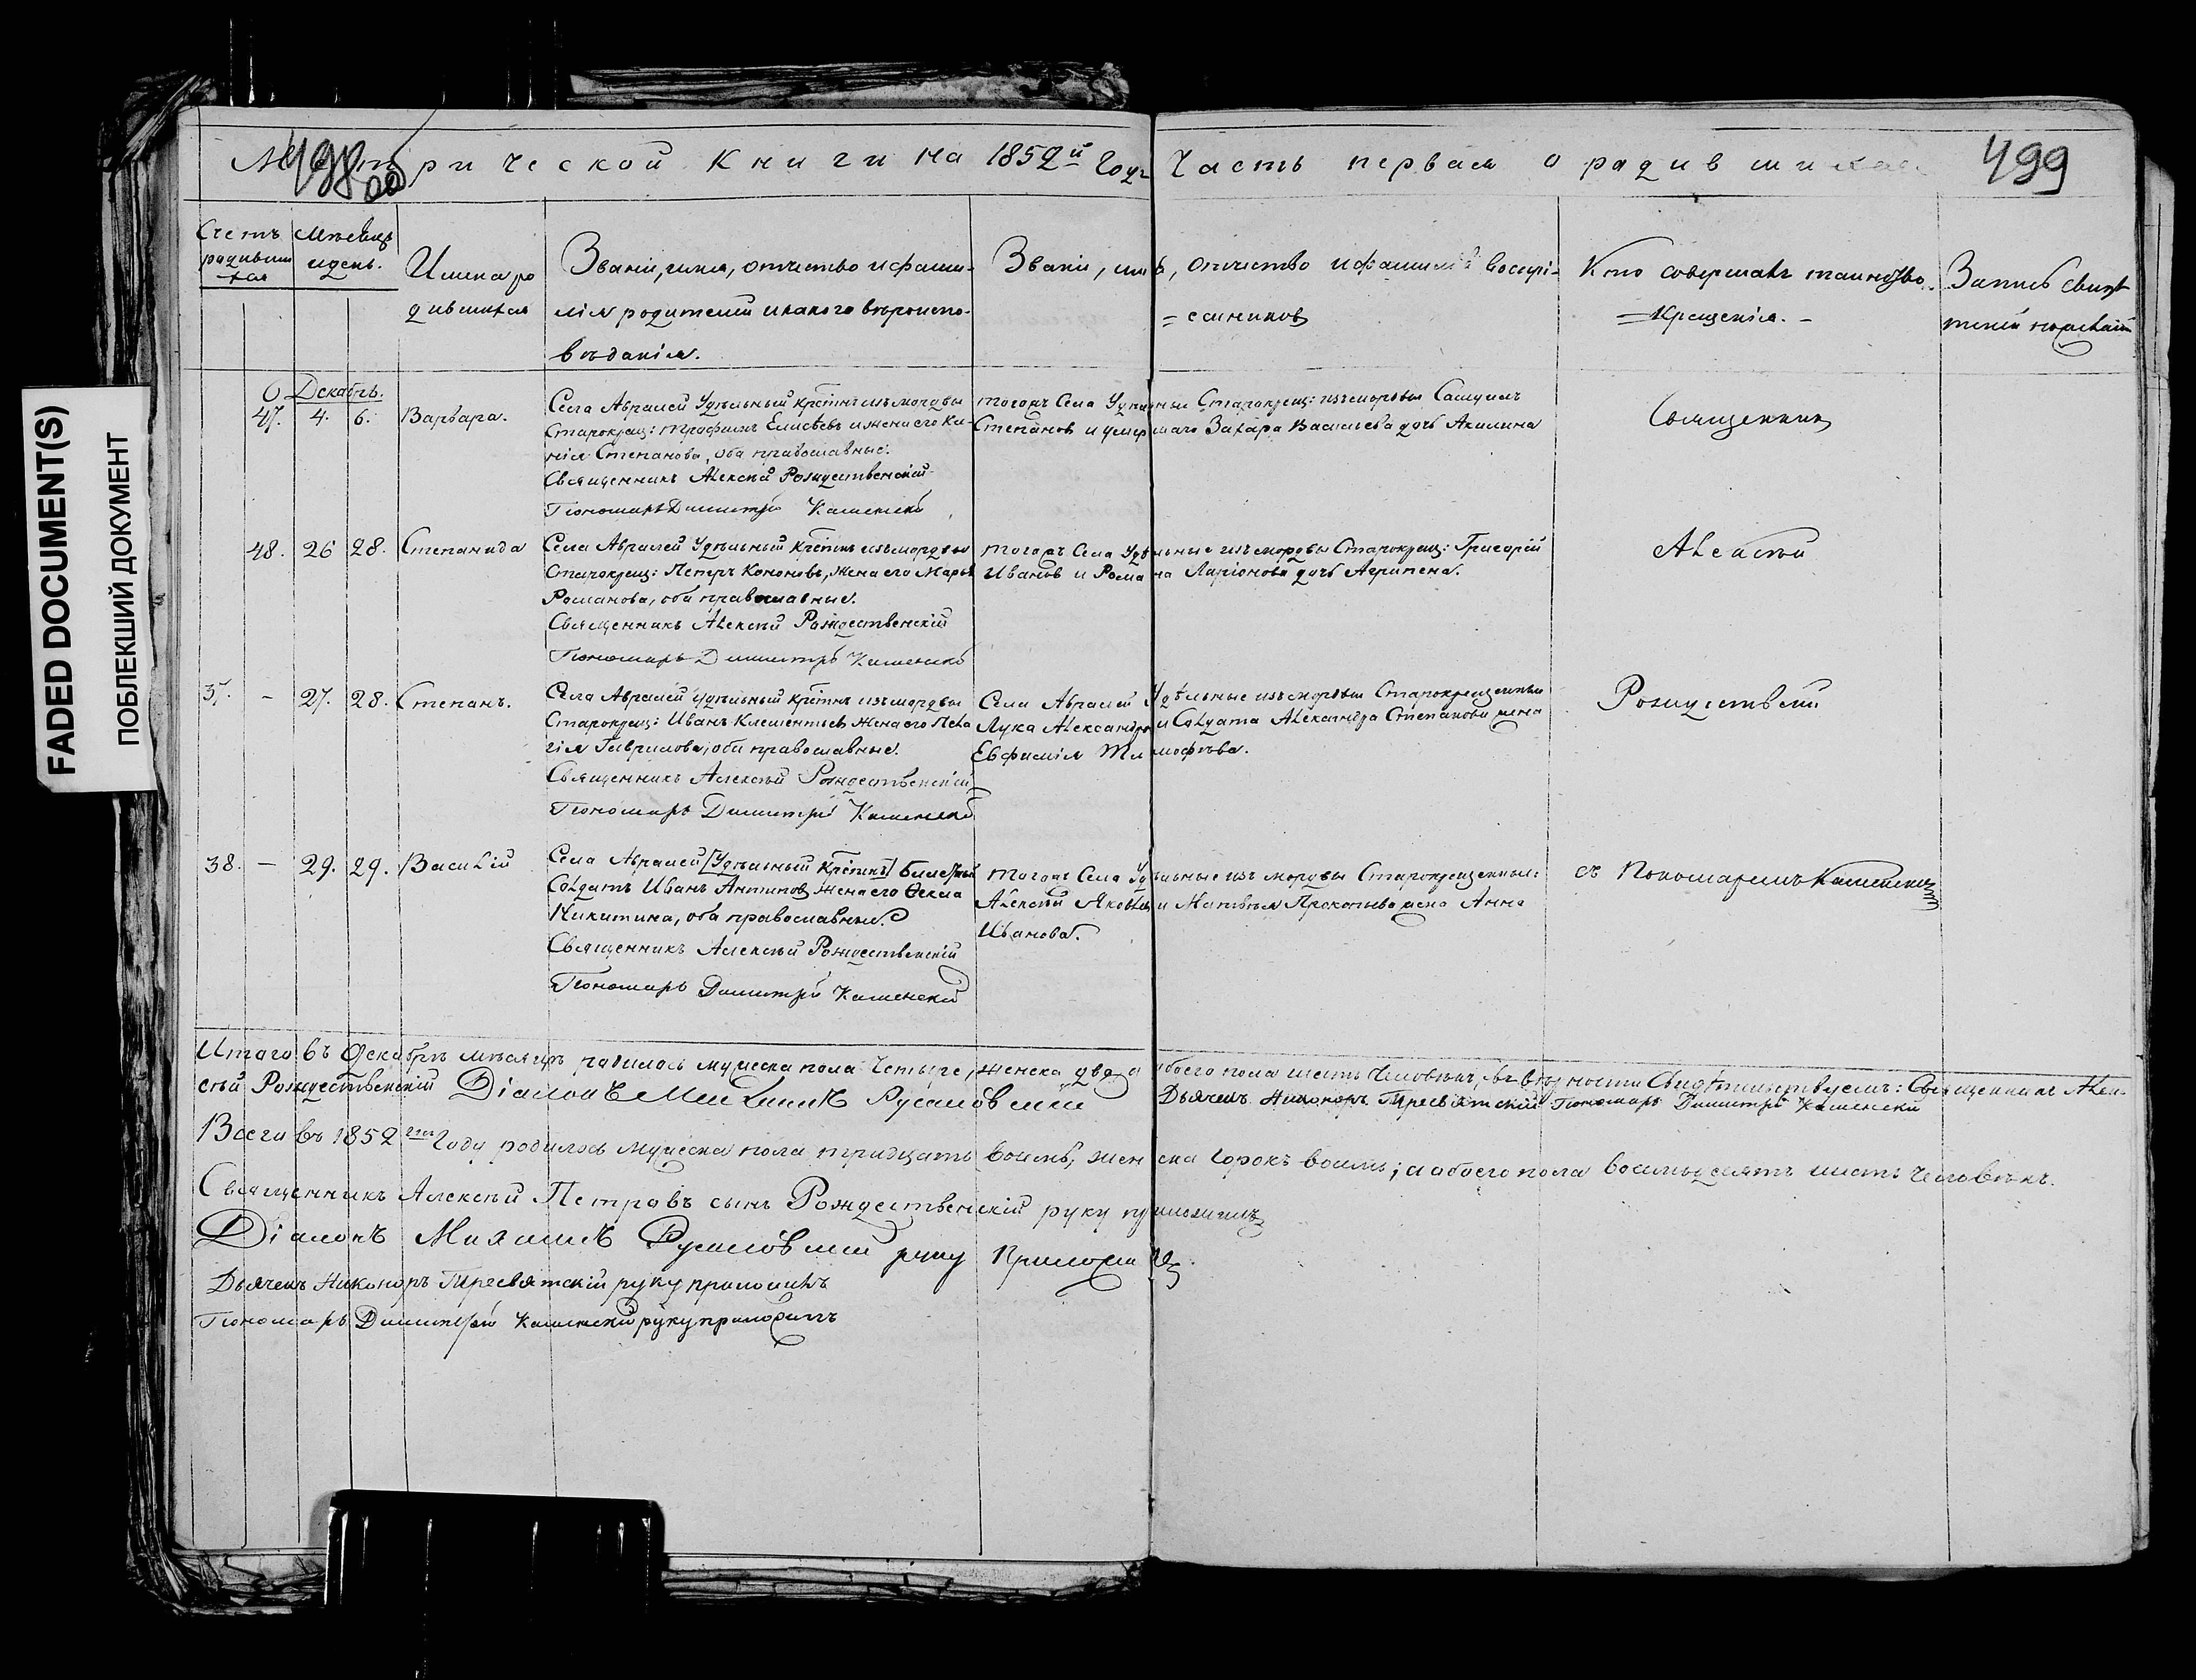 FADED DOCUMENT(S)
ПОБЛЕКШИЙ ДОКУМЕНТ
Метрической книги на 1852й годъ Часть первая о родившихся
498 об
499
Счетъ родившихся
Мѣсяцъ и день.
Имена родившихся
Званіи, имя, отчество и фамилія родителей и какого вѣроисповѣданія.
Званіи, имя, отчество и фамилія воспріемниковъ
Кто совершалъ таинство Крещенія.
Запись свидѣтелей
Декабрь.
47. 4. 6. Варвара.
Села Авралей Удѣльный крестнъ изъ мордвы
Старокрещ: Трофимъ Елисѣевъ и жена его Ксенія Степанова, оба православные.
Священникъ Алексѣй Рождественскій
Пономарь Димитрій Каменскій
Тогожъ Села Удѣльные Старокрещ: изъ мордвы Самуилъ
Степановъ и умершаго Захара Васильева дочь Акилина
Священникъ
48. 26 28. Степанида
Села Авралей Удѣльный крестнъ изъ мордвы
Старокрещ: Петръ Кононовъ, жена его Марья
Романова, оба православные.
Священникъ Алексѣй Рождественскій
Пономарь Димитрій Каменскій
Тогожъ Села Удѣльные изъ мордвы Старокрещ: Григорій
Ивановъ и Романа Ларіонова дочь Агрипена.
Алексѣй
37. – 27. 28. Степанъ.
Села Авралей удѣльный крестнъ изъ мордвы
Старокрещ: Иванъ Клементьевъ жена его Пелагія Гаврилова, оба православные.
Священникъ Алексѣй Рождественскій
Пономарь Димитрій Каменскій
Села Авралей Удѣльные изъ мордвы Старокрещенные
Лука Александровъ и Солдата Александра Степанова жена
Евфимія Тимофѣева.
Рождественскій
38. – 29. 29. Василій
Села Авралей [Удѣльный крестнъ] билетный
Солдатъ Иванъ Антиповъ жена его Ѳекла
Никитина, оба православные.
Священникъ Алексѣй Рождественскій
Пономарь Димитрій Каменскій
Тогожъ Села Удѣльные изъ мордвы Старокрещенные:
Алексѣй Яковлевъ и Матвѣя Прокопьева жена Анна
Иванова.
съ Пономаремъ Каменскимъ
Итого въ Декабрѣ мѣсяцѣ родилось мужеска пола четыре, женска два, а обоего пола шесть человѣкъ, въ вѣрности свидѣтельствуемъ: Священникъ Алексѣй Рождественскій Діаконъ Михаилъ Русановскій Дьячекъ Никоноръ Тресвятскій Пономарь Димитрій Каменскій
Всего въ 1852 году родилось мужеска пола тридцать восемь, женска сорокъ восемь; а обоего пола восемьдесятъ шесть человѣкъ.
Священникъ Алексѣй Петровъ сынъ Рождественскій руку приложилъ
Діаконъ Михаилъ Русановскій руку приложилъ
Дьячекъ Никоноръ Тресвятскій руку приложилъ
Пономарь Димитрій Каменскій руку приложилъ